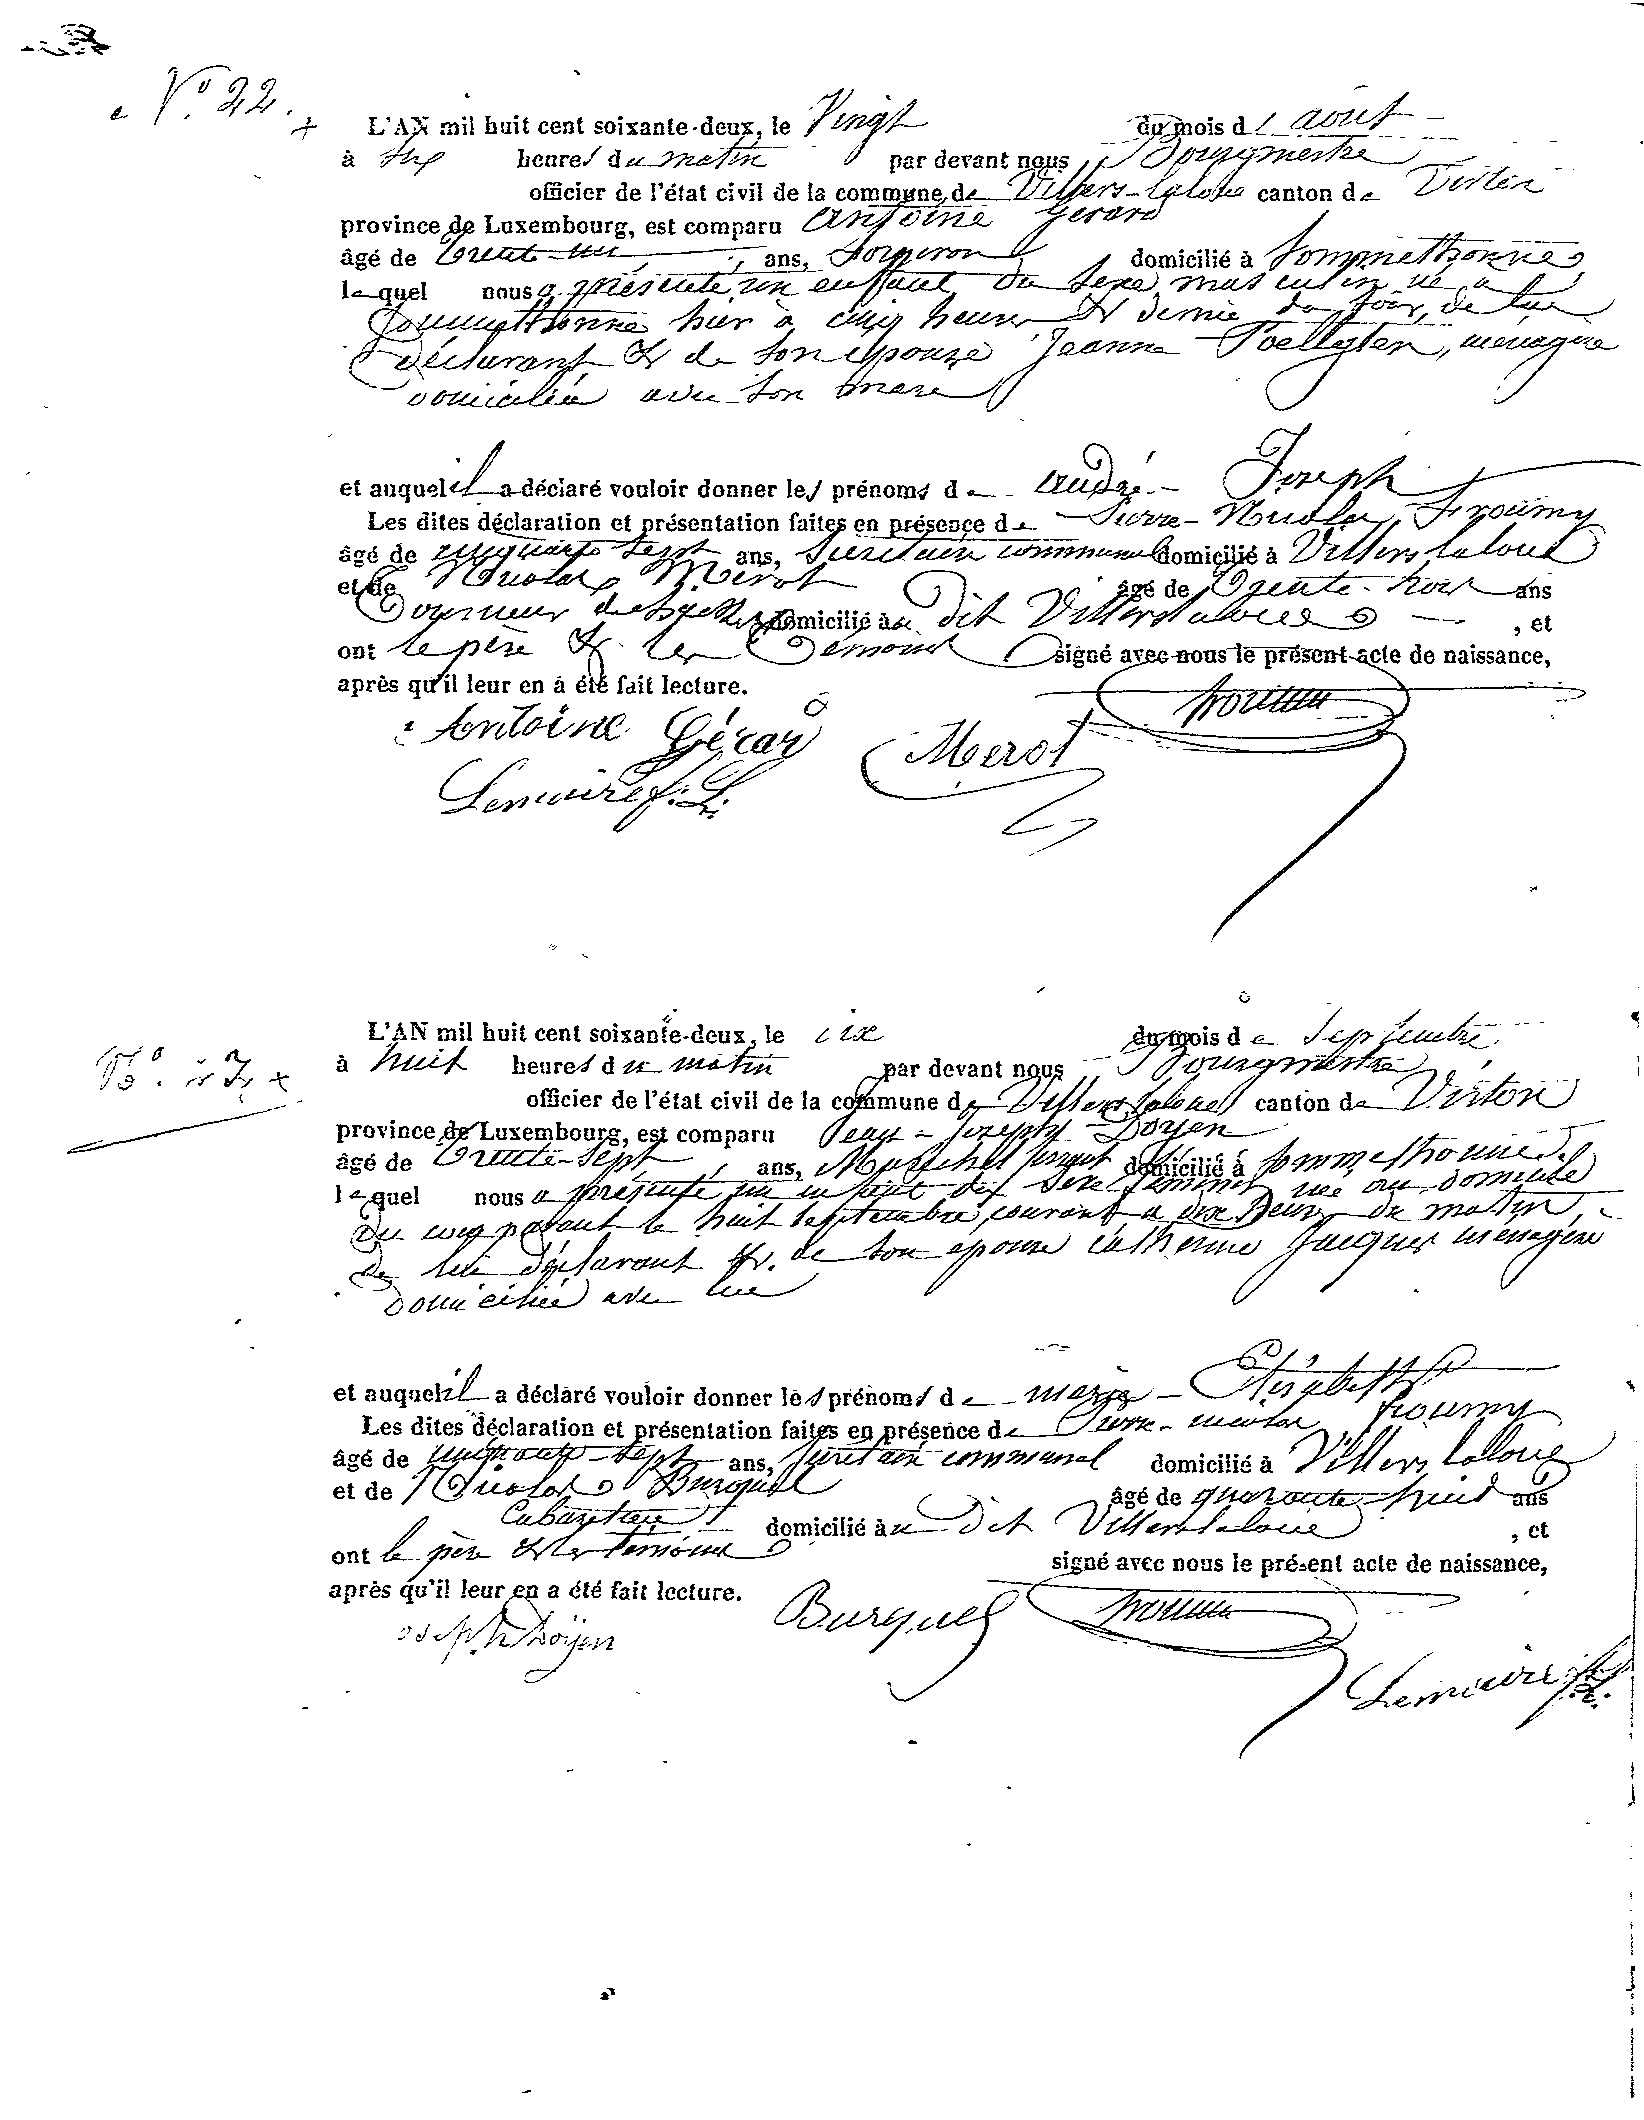 N° 22.
L'AN mil huit cent soixante-deux, le Vingt du mois d' août
à six heures du matin par devant nous Bourgmestre
officier de l'état civil de la commune de Villers-laloue canton de Virton
province de Luxembourg, est comparu Antoine Gerard
âgé de Trente-un ans, forgeron domicilié à Sommethonne
lequel nous a présenté un enfant du sexe masculin né à
Sommethonne hier à cinq heures & demie du soir, de lui
déclarant & de son epouse Jeanne ménagère
domiciliée avec son mare
et auquel il a déclaré vouloir donner les prénoms de André - Joseph
Les dites déclaration et présentation faites en présence de Pierre-Nicolas Froumy
âgé de cinquante sept ans, Secretaire communal domicilié à Villers laloue
et de Nicolas Merot âgé de Trente-trois ans
Tourneur domicilié au dit Villerslaloue , et
ont le père & les Témoins signé avec nous le présent acte de naissance,
après qu'il leur en à été fait lecture.
Antoine Gérard
Merot
froumy
Lemaire f. L.
N°. 23
L'AN mil huit cent soixante-deux, le dix du mois de Septembre
à huit heures du matin par devant nous Bourgmestre
officier de l'état civil de la commune de Villers laloue canton de Virton
province de Luxembourg, est comparu Jean-Joseph Doyen
âgé de Trente-Sept ans, Maréchal ferrant domicilié à Sommethonne
lequel nous a présenté un enfant du sexe féminin née au domicile
du comparant le huit Septembre courant à dix heures du matin,
de lui déclarant & de son epouse catherine Jacques ménagère
domiciliée avec lui
et auquel il a déclaré vouloir donner les prénoms de marie - Elisabeth
Les dites déclaration et présentation faites en présence de Pierre-nicolas froumy
âgé de cinquante-sept ans, Secretaire communal domicilié à Villers laloue
et de Nicolas Burquel âgé de quarante-huit ans
Cabaretier domicilié au Dit Villerslaloue , et
ont le père & les temoins signé avec nous le présent acte de naissance,
après qu'il leur en a été fait lecture.
Joseph Doÿen
Burquel
froumy
Lemaire f. L.